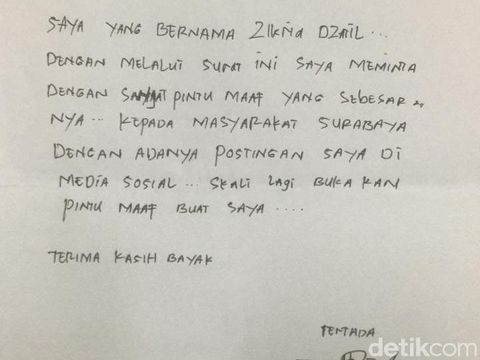 SAYA YANG BERNAMA ZIKRIA DZATIL...
DENGAN MELALUI SURAT INI SAYA MEMINTA
DENGAN SANGAT PINTU MAAF YANG SEBESAR"
NYA... KEPADA MASYARAKAT SURABAYA
DENGAN ADANYA POSTINGAN SAYA DI
MEDIA SOSIAL... SKALI LAGI BUKA KAN
PINTU MAAF BUAT SAYA ....
TERIMA KASIH BAYAK
TERTADA
detikcom